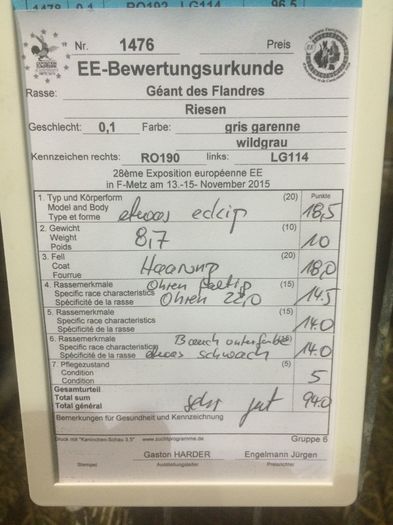 1478 0,1 RO192 LG114 96.5
Nr. 1476 Preis
EE-Bewertungsurkunde
Rasse: Géant des Flandres
Riesen
Geschlecht: 0,1 Farbe: gris garenne
wildgrau
Kennzeichen rechts: RO190 links: LG114
28ème Exposition européenne EE
in F-Metz am 13.-15- November 2015
1. Typ und Körperform (20) Punkte
Model and Body
Type et forme etwas eckig 18,5
2. Gewicht (10)
Weight 8,7 10
Poids
3. Fell (20)
Coat Haarung 18,0
Fourrue
4. Rassemerkmale Ohren (15)
Specific race characteristics 14.5
Spécificité de la rasse Ohren 22,0
5. Rassemerkmale (15)
Specific race characteristics 14.0
Spécificité de la rasse
6. Rassemerkmale Bauch unterfarbe
Specific race characteristics 14.0
Spécificité de la rasse etwas schwach
7. Pflegezustand (5)
Condition 5
Condition
Gesamturteil
Total sum sehr gut 94.0
Total général
Bemerkungen für Gesundheit und Kennzeichnung
Druck mit "Kaninchen-Schau 3.5" www.zuchtprogramme.de Gruppe 6
Gaston HARDER Engelmann Jürgen
Stempel Ausstellungsleiter Preisrichter